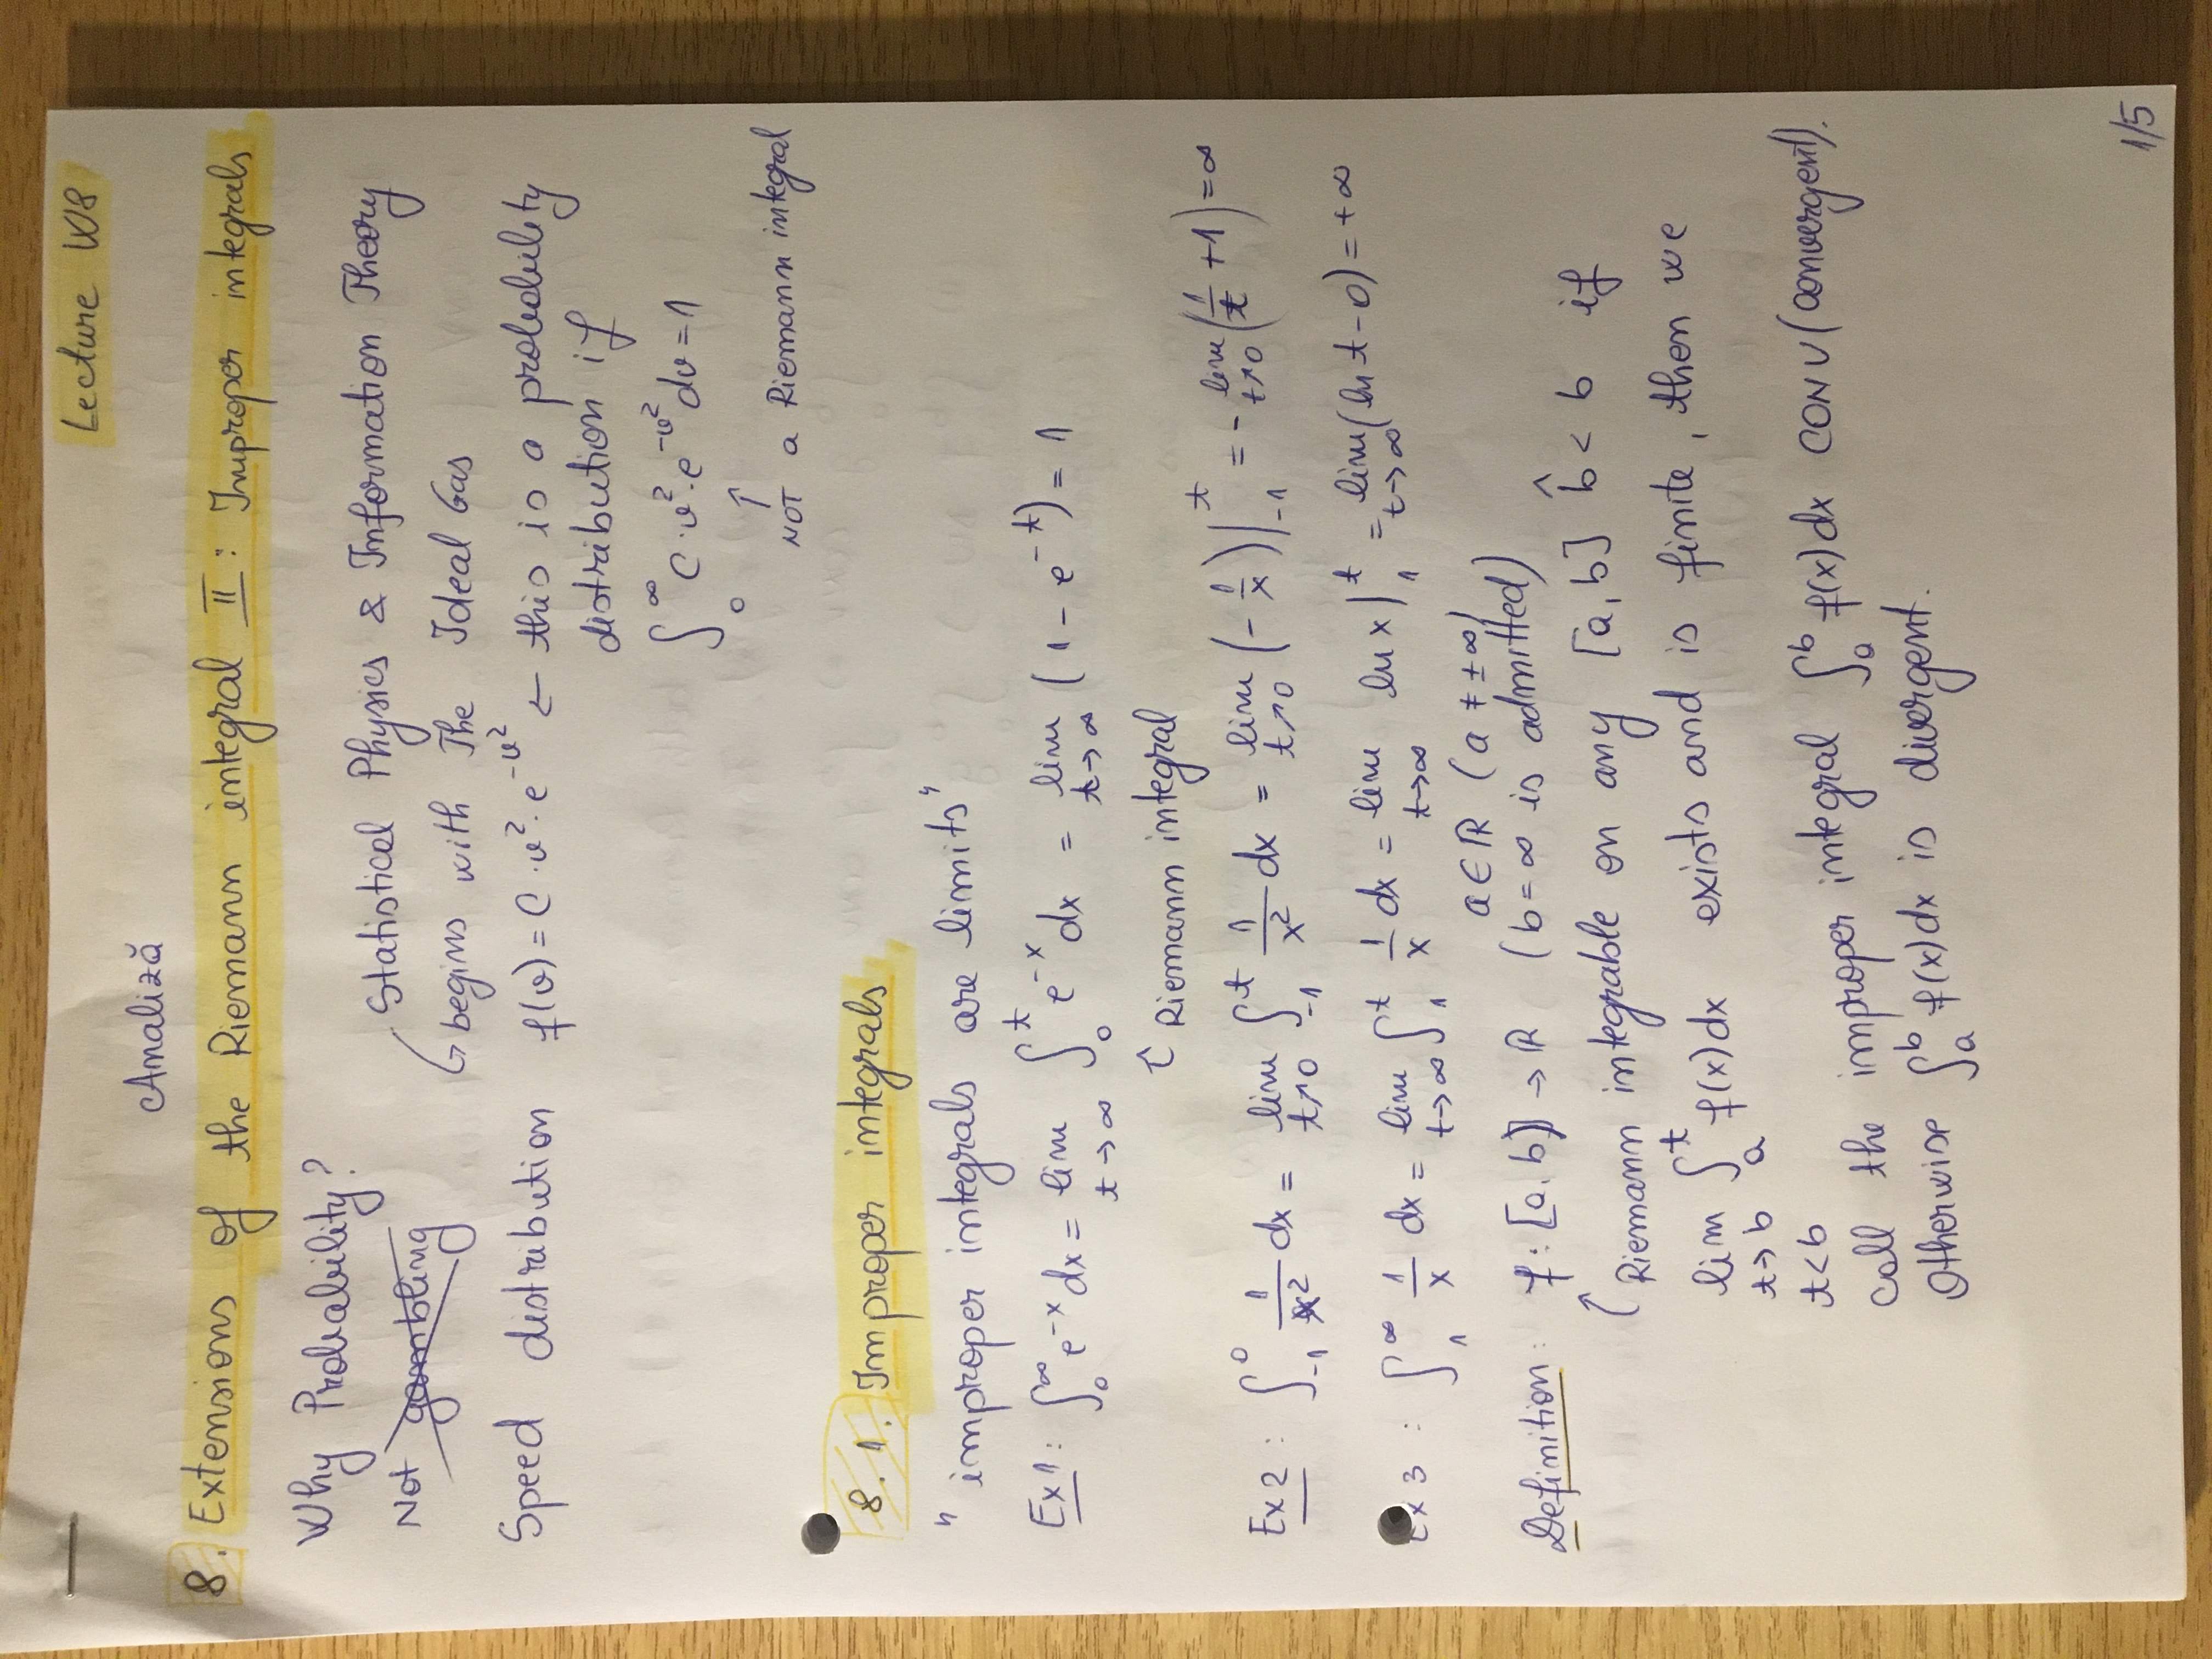 Lecture W8
Analiză
8. Extensions of the Riemann integral II: Improper integrals
Why Probability?
Not gambling
Statistical Physics & Information Theory
↳ begins with The Ideal Gas
Speed distribution f(v) = C · v² · e^{-v²} ← this is a probability
distribution if
∫_0^∞ C · v² · e^{-v²} dv = 1
↑
NOT a Riemann integral
8.1. Improper integrals
"improper integrals are limits"
Ex1: ∫_0^∞ e^{-x} dx = lim_{t→∞} ∫_0^t e^{-x} dx = lim_{t→∞} (1 - e^{-t}) = 1
↑ Riemann integral
Ex2: ∫_{-1}^0 1/x² dx = lim_{t↗0} ∫_{-1}^t 1/x² dx = lim_{t↗0} (-1/x)|_{-1}^t = - lim_{t↗0} (1/t + 1) = ∞
Ex3: ∫_1^∞ 1/x dx = lim_{t→∞} ∫_1^t 1/x dx = lim_{t→∞} ln x|_1^t = lim_{t→∞} (ln t - 0) = +∞
a ∈ ℝ (a ≠ ±∞)
Definition: f: [a, b) → ℝ (b = ∞ is admitted)
↑ Riemann integrable on any [a, b] b̂ < b if
lim_{t→b, t<b} ∫_a^t f(x) dx exists and is finite, then we
call the improper integral ∫_a^b f(x) dx CONV (convergent).
Otherwise ∫_a^b f(x) dx is divergent.
1/5